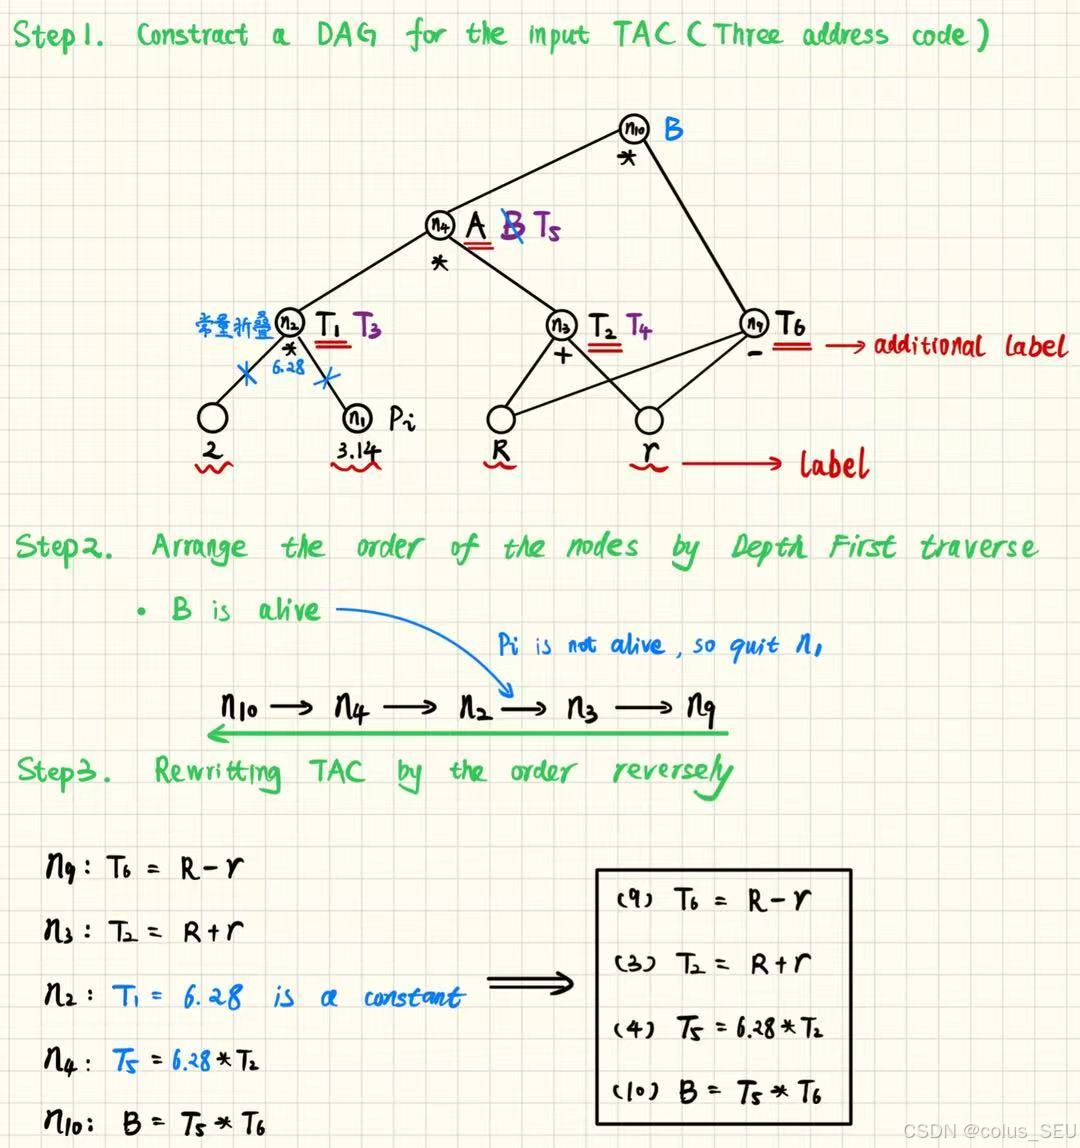 Step1. Constract a DAG for the input TAC (Three address code)
n10 B
*
n4 A B T5
*
常量折叠 n2 T1 T3
*
6.28
n3 T2 T4
+
n9 T6
-
additional label
2
n1 Pi
3.14
R
r
label
Step2. Arrange the order of the nodes by Depth First traverse
• B is alive
Pi is not alive, so quit n1
n10 → n4 → n2 → n3 → n9
Step3. Rewritting TAC by the order reversely
n9: T6 = R-r
n3: T2 = R+r
n2: T1 = 6.28 is a constant
n4: T5 = 6.28*T2
n10: B = T5 * T6
(9) T6 = R-r
(3) T2 = R+r
(4) T5 = 6.28*T2
(10) B = T5 * T6
CSDN @colus_SEU